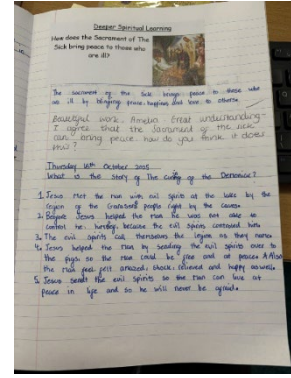 Deeper Spiritual Learning
How does the Sacrament of The
Sick bring peace to those who
are ill?
The sacrament of the Sick brings peace to those who
as ill by bringing praise, happiness and love to others.
Beautiful work, Amelia. Great understanding.
I agree that the Sacrament of the sick
can bring peace. how do you think it does
this?
Thursday 16th October 2025
What is the story of The curing of the Demoniac?
1. Jesus Met the man with evil spirits at the lake by the
region of the people right by the caves.
2. Before Jesus helped the man he was not able to
control his because the evil spirits controlled him
3. The evil spirits call themselves the legion as they name.
4. Jesus helped the man by sending the evil spirits over to
the pigs so the man could be free and at peace. Also
the man feel amazed, shock, relieved and happy aswell.
5. Jesus sendt the evil spirits so the man can live at
peace in life and so he will never be afraid.